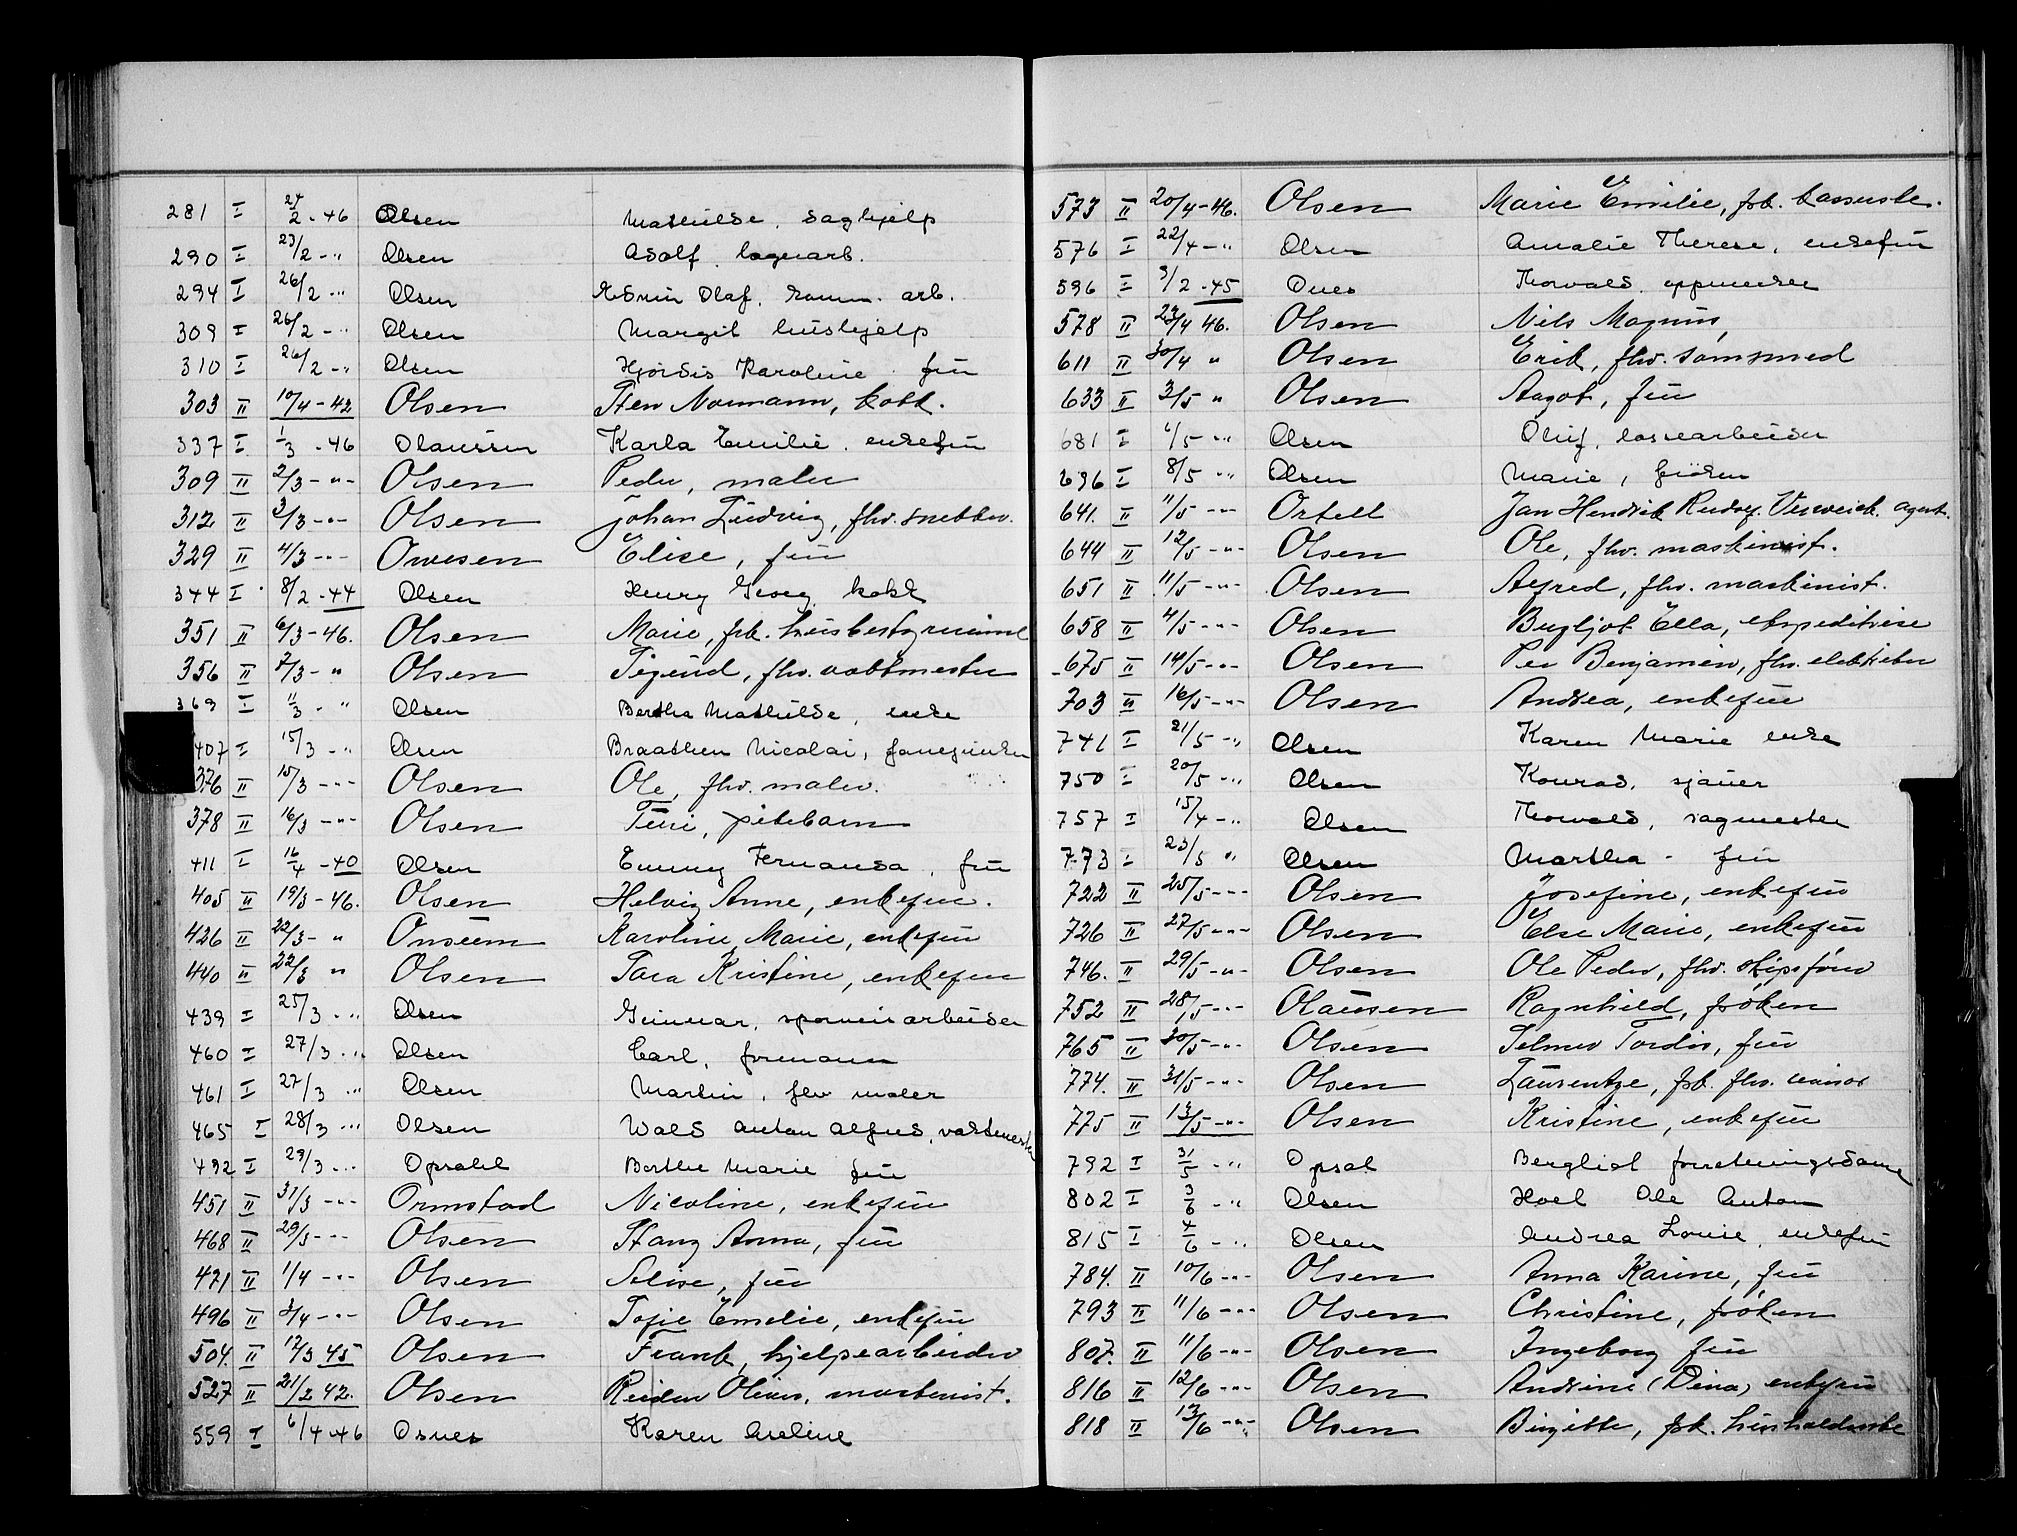 281 I 24/2 - 46 Olsen Mathilde, daghjelp
290 I 23/2 - " Olsen Adolf, lagerarb.
294 I 26/2 - " Olsen Edvin Olaf, komm. arb.
309 I 26/2 - " Olsen Margit hushjelp
310 I 26/2 - " Olsen Hjördis Karoline fru
303 II 10/4 - 42 Olsen Sten Normann, kokk.
337 I 1/3 - 46 Olaussen Karla Emilie, enkefru
309 II 2/3 - " - Olsen Peder, maler
312 II 3/3 - " - Olsen Johan Ludvig, fhv. snekker.
329 II 4/3 - " - Owesen Elise, fru
344 I 8/2 - 44 Olsen Henry Georg kokk
351 II 6/3 - 46. Olsen Marie, frk. husbestyrerinne
356 II 7/3 - " Olsen Sigurd, fhv. vaktmester
369 I 11/3 - " Olsen Bertha Mathilde, enke
407 I 15/3 - " Olsen Braathen Nicolai,
376 II 15/3 - " - Olsen Ole, fhv. maler.
378 II 16/3 - " - Olsen Turi, pikebarn
411 I 16/4 - 40 Olsen Emmy Fernanda, fru
405 II 19/3 - 46. Olsen Helvig Anne, enkefru.
426 II 22/3 - " Onsum Karoline Marie, enkefru
440 II 22/3 " Olsen Tara Kristine, enkefru
439 I 25/3 - " Olsen Gunnar, sporveisarbeider
460 I 27/3 - " Olsen Carl, formann
461 I 27/3 - " Olsen Martin, fhv maler
465 I 28/3 - " Olsen Wald Anton Alfred, vaktmester
492 I 29/3 - " Opsahl Berthe Marie fru
451 II 31/3 - " - Ormstad Nicoline, enkefru
468 II 29/3 - " - Olsen Stang Anna, fru
471 II 1/4 - " - Olsen Selise, fru
496 II 3/4 - " - Olsen Sofie Emelie, enkefru
504. II 12/3 45 Olsen Frank, hjelpearbeider
527 II 21/2 42. Olsen Reidar Oliver, maskinist.
559 I 6/4 - 46 Osnes Karen Aveline
573 II 20/4 - 46. Olsen Marie Emilie, frk. kasserske.
576 I 22/4 - " Olsen Amalie Therese, enkefru
596 I 9/2 - 45 Ones Thorvald, oppmelder
578 II 23/4 46. Olsen Nils Magnus,
611 II 30/4 " Olsen Erik, fhv. sømsmed
633 II 3/5 " Olsen Aagot, fru
681 I 6/5 - " Olsen Oluf, lossearbeider
696 I 8/5 - " Olsen Marie, frøken
641. II 11/5 - " - Ortell Jan Hendrik Rudolf agent.
644 II 12/5 - " - Olsen Ole, fhv. maskinist.
651 II 11/5 - " - Olsen Alfred, fhv. maskinist.
658 II 4/5 - " - Olsen Bergljot Ella, ekspeditrise
675 II 14/5 - " - Olsen Per Benjamin, fhv. elektriker
703 II 16/5 - " - Olsen Andrea, enkefru
741 I 21/5 - " Olsen Karen Marie enke
750 I 20/5 - " Olsen Konrad, sjauer
757 I 15/4 - " Olsen Thorvald, sagmester
773 I 23/5 " Olsen Martha - fru
722 II 25/5 - " - Olsen Josefine, enkefru
726 II 27/5 - " - Olsen Else Marie, enkefru
746. II 29/5 - " - Olsen Ole Peder, fhv. skipsfører
752 II 28/5 - " - Olausen Ragnhild, frøken
765 II 30/5 - " - Olsen Selmer Tordis, fru
774. II 31/5 - " - Olsen Laurentze, frk. fhv.
775 II 13/5 - " - Olsen Kristine, enkefru
792 I 31/5 - " Opsal Bergliot forretningsdame
802 I 3/6 - " Olsen Hoel Ole Anton
815 I 4/6 - " Olsen Andrea Louise, enkefru
784. II 10/6 - " - Olsen Anna Karine, fru
793 II 11/6 - " - Olsen Christine, frøken
807. II 11/6 - " - Olsen Ingeborg fru
816 II 12/6 - " - Olsen Andrine (Dina) enkefru
818 II 13/6 - " - Olsen Birgitte, frk. husholderske